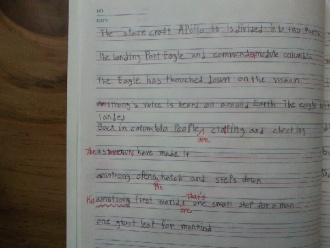 NO
DATE
The space craft Apollo 11 is divided into two Parts
The landing Part Eagle and command module columbia
The Eagle has thouched down on the
Amstrong's voice is heard on around Earth. The eagle has
landed
Back in columbia People claffing and cheering
are
The astronauts have made it
amstrong opens hatch and steps down
His amstrong first words: one small step for a man
That's
one giant leat for mankind